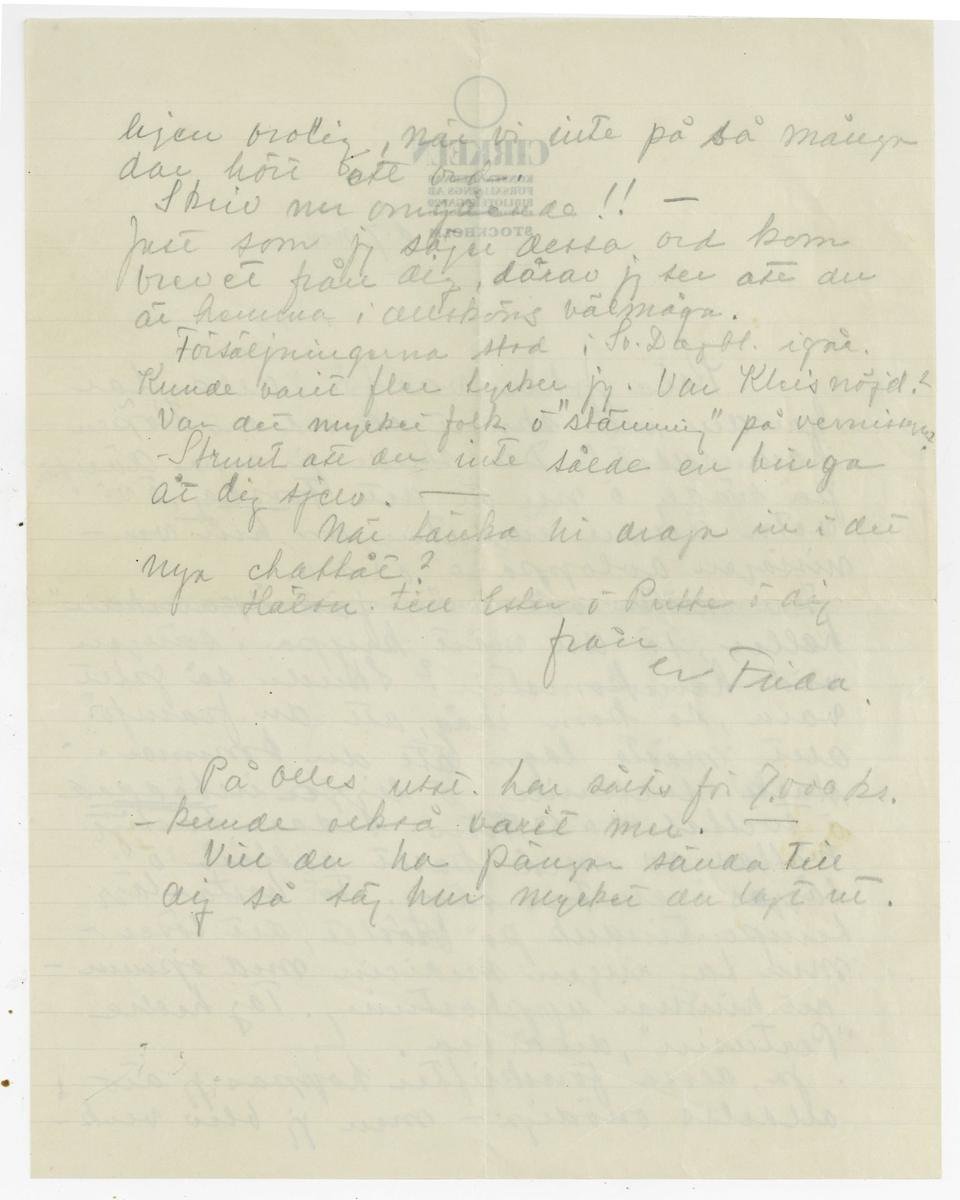 ligen orolig, när vi inte på så många
dar hört ett ord.
Skriv nu omgående!! —
Just som jg säger dessa ord kom
brevet från dig, därav jg ser att du
är hemma i allsköns välmåga.
Försäljningarna stod i Sv. Dagbl. igår.
Kunde varit fler tycker jg. Var Kleis nöjd?
Var det mycket folk o "stämning" på vernissagen?
- Strunt att du inte sålde en binga
åt dig sjelv. —
När tänka ni draga in i det
nya chattåt?
Hälsn. till Ester o Putte o dig
från
er Frida.
På Olles utst. har sålts för 7.000 kr.
- kunde också varit mer. —
Vill du ha pängar sända till
dig så säg hur mycket du lagt ut.
CIRKELN
STOCKHOLM